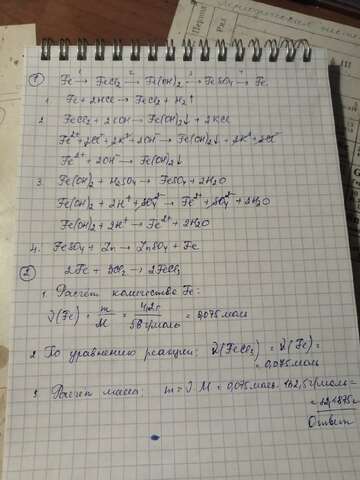 1 2 3 4
① Fe → FeCl₂ → Fe(OH)₂ → FeSO₄ → Fe.
1. Fe + 2HCl → FeCl₂ + H₂↑
2 FeCl₂ + 2KOH → Fe(OH)₂↓ + 2KCl
Fe²⁺ + 2Cl⁻ + 2K⁺ + 2OH⁻ → Fe(OH)₂↓ + 2K⁺ + 2Cl⁻
Fe²⁺ + 2OH⁻ → Fe(OH)₂↓
3. Fe(OH)₂ + H₂SO₄ → FeSO₄ + 2H₂O
Fe(OH)₂ + 2H⁺ + SO₄²⁻ → Fe²⁺ + SO₄²⁻ + 2H₂O
Fe(OH)₂ + 2H⁺ → Fe²⁺ + 2H₂O
4. FeSO₄ + Zn → ZnSO₄ + Fe
② 2Fe + 3Cl₂ → 2FeCl₃
1. Расчёт количества Fe:
ν(Fe) = m/M = 4,2г/56г/моль = 0,075моль
2 По уравнению реакции: ν(FeCl₃) = ν(Fe) =
= 0,075моль
3 Расчёт массы: m = ν M = 0,075моль · 162,5г/моль =
= 12,1875г
Ответ